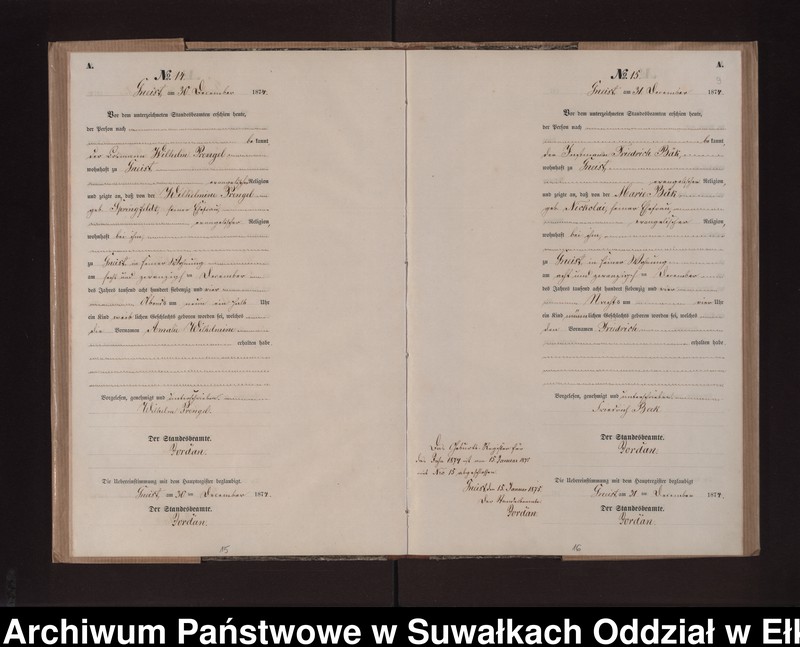 A.
No. 14
am 30 December 1874.
Vor dem unterzeichneten Standesbeamten erschien heute,
der Person nach
be kannt,
der Losmann Wilhelm Prengel
wohnhaft zu
evangelischer Religion
und zeigte an, daß von der Wilhelmine Prengel
geb. seiner Ehefrau,
evangelischer Religion,
wohnhaft bei ihm,
zu in seiner Wohnung
am sechs und zwanzigsten December
des Jahres tausend acht hundert siebenzig und vier
Abends um neun ein halb Uhr
ein Kind weiblichen Geschlechts geboren worden sei, welches
den Vornamen Amalie Wilhelmine
erhalten habe
Vorgelesen, genehmigt und unterschrieben
Wilhelm Prengel
Der Standesbeamte.
Jordan.
Die Uebereinstimmung mit dem Hauptregister beglaubigt
am 30 ten December 1874.
Der Standesbeamte.
Jordan.
15
A.
3
No. 15
am 31 December 1874.
Vor dem unterzeichneten Standesbeamten erschien heute,
der Person nach
be kannt,
der Friedrich Bäk,
wohnhaft zu
evangelischer Religion
und zeigte an, daß von der Marie Bäk
geb. Nickolai, seiner Ehefrau,
evangelischer Religion,
wohnhaft bei ihm,
zu in seiner Wohnung
am acht und zwanzigsten December
des Jahres tausend acht hundert siebenzig und vier
Nachts um vier Uhr
ein Kind männlichen Geschlechts geboren worden sei, welches
den Vornamen Friedrich
erhalten habe
Vorgelesen, genehmigt und unterschrieben
Friedrich Bäk
Der Standesbeamte.
Jordan.
Die Uebereinstimmung mit dem Hauptregister beglaubigt
am 31 ten December 1874.
Der Standesbeamte.
Jordan.
Das Geburts-Register für
das Jahr 1874 ist am 15 Januar 1875
mit No 15 abgeschlossen
den 15. Januar 1875.
Der Standesbeamte.
Jordan.
16
Archiwum Państwowe w Suwałkach Oddział w Ełk